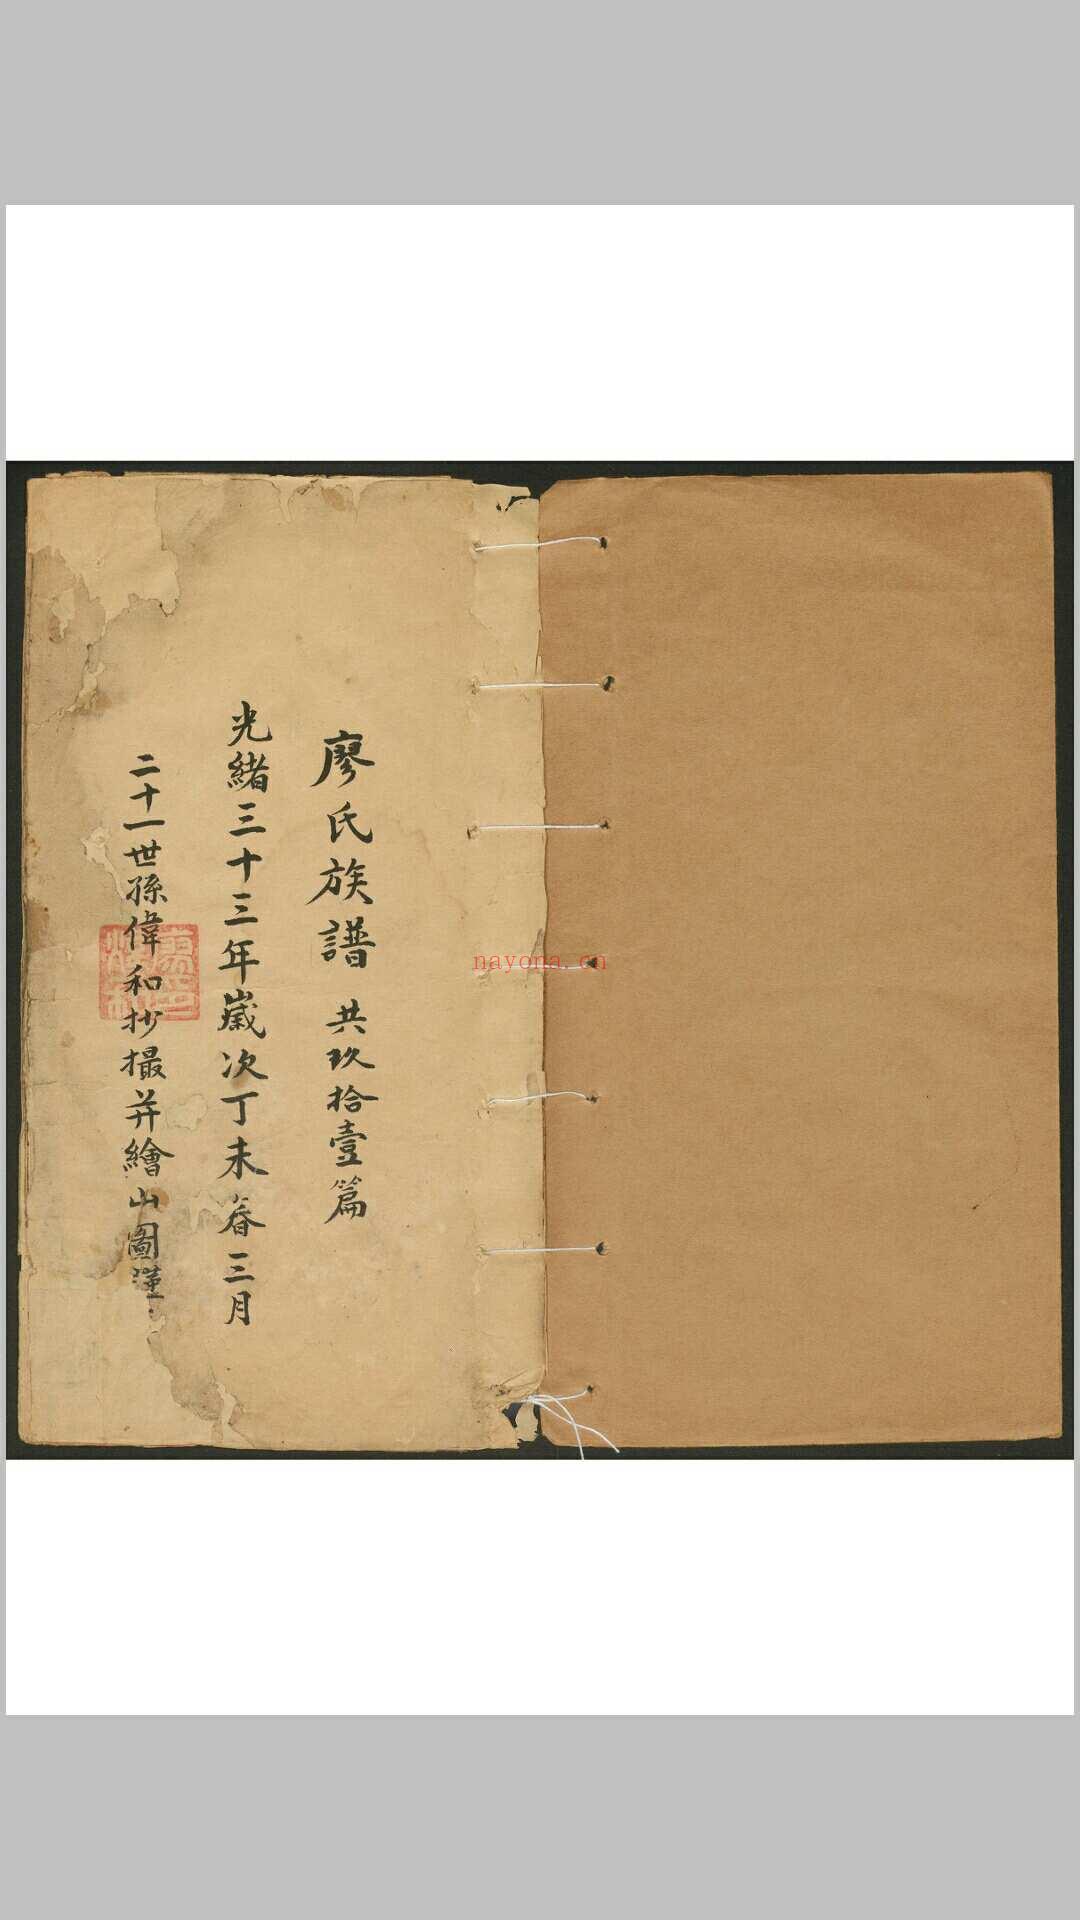 廖氏族譜 共玖拾壹篇
光緒三十三年歲次丁未春三月
二十一世孫偉和抄撮并繪山圖
nayona.cn